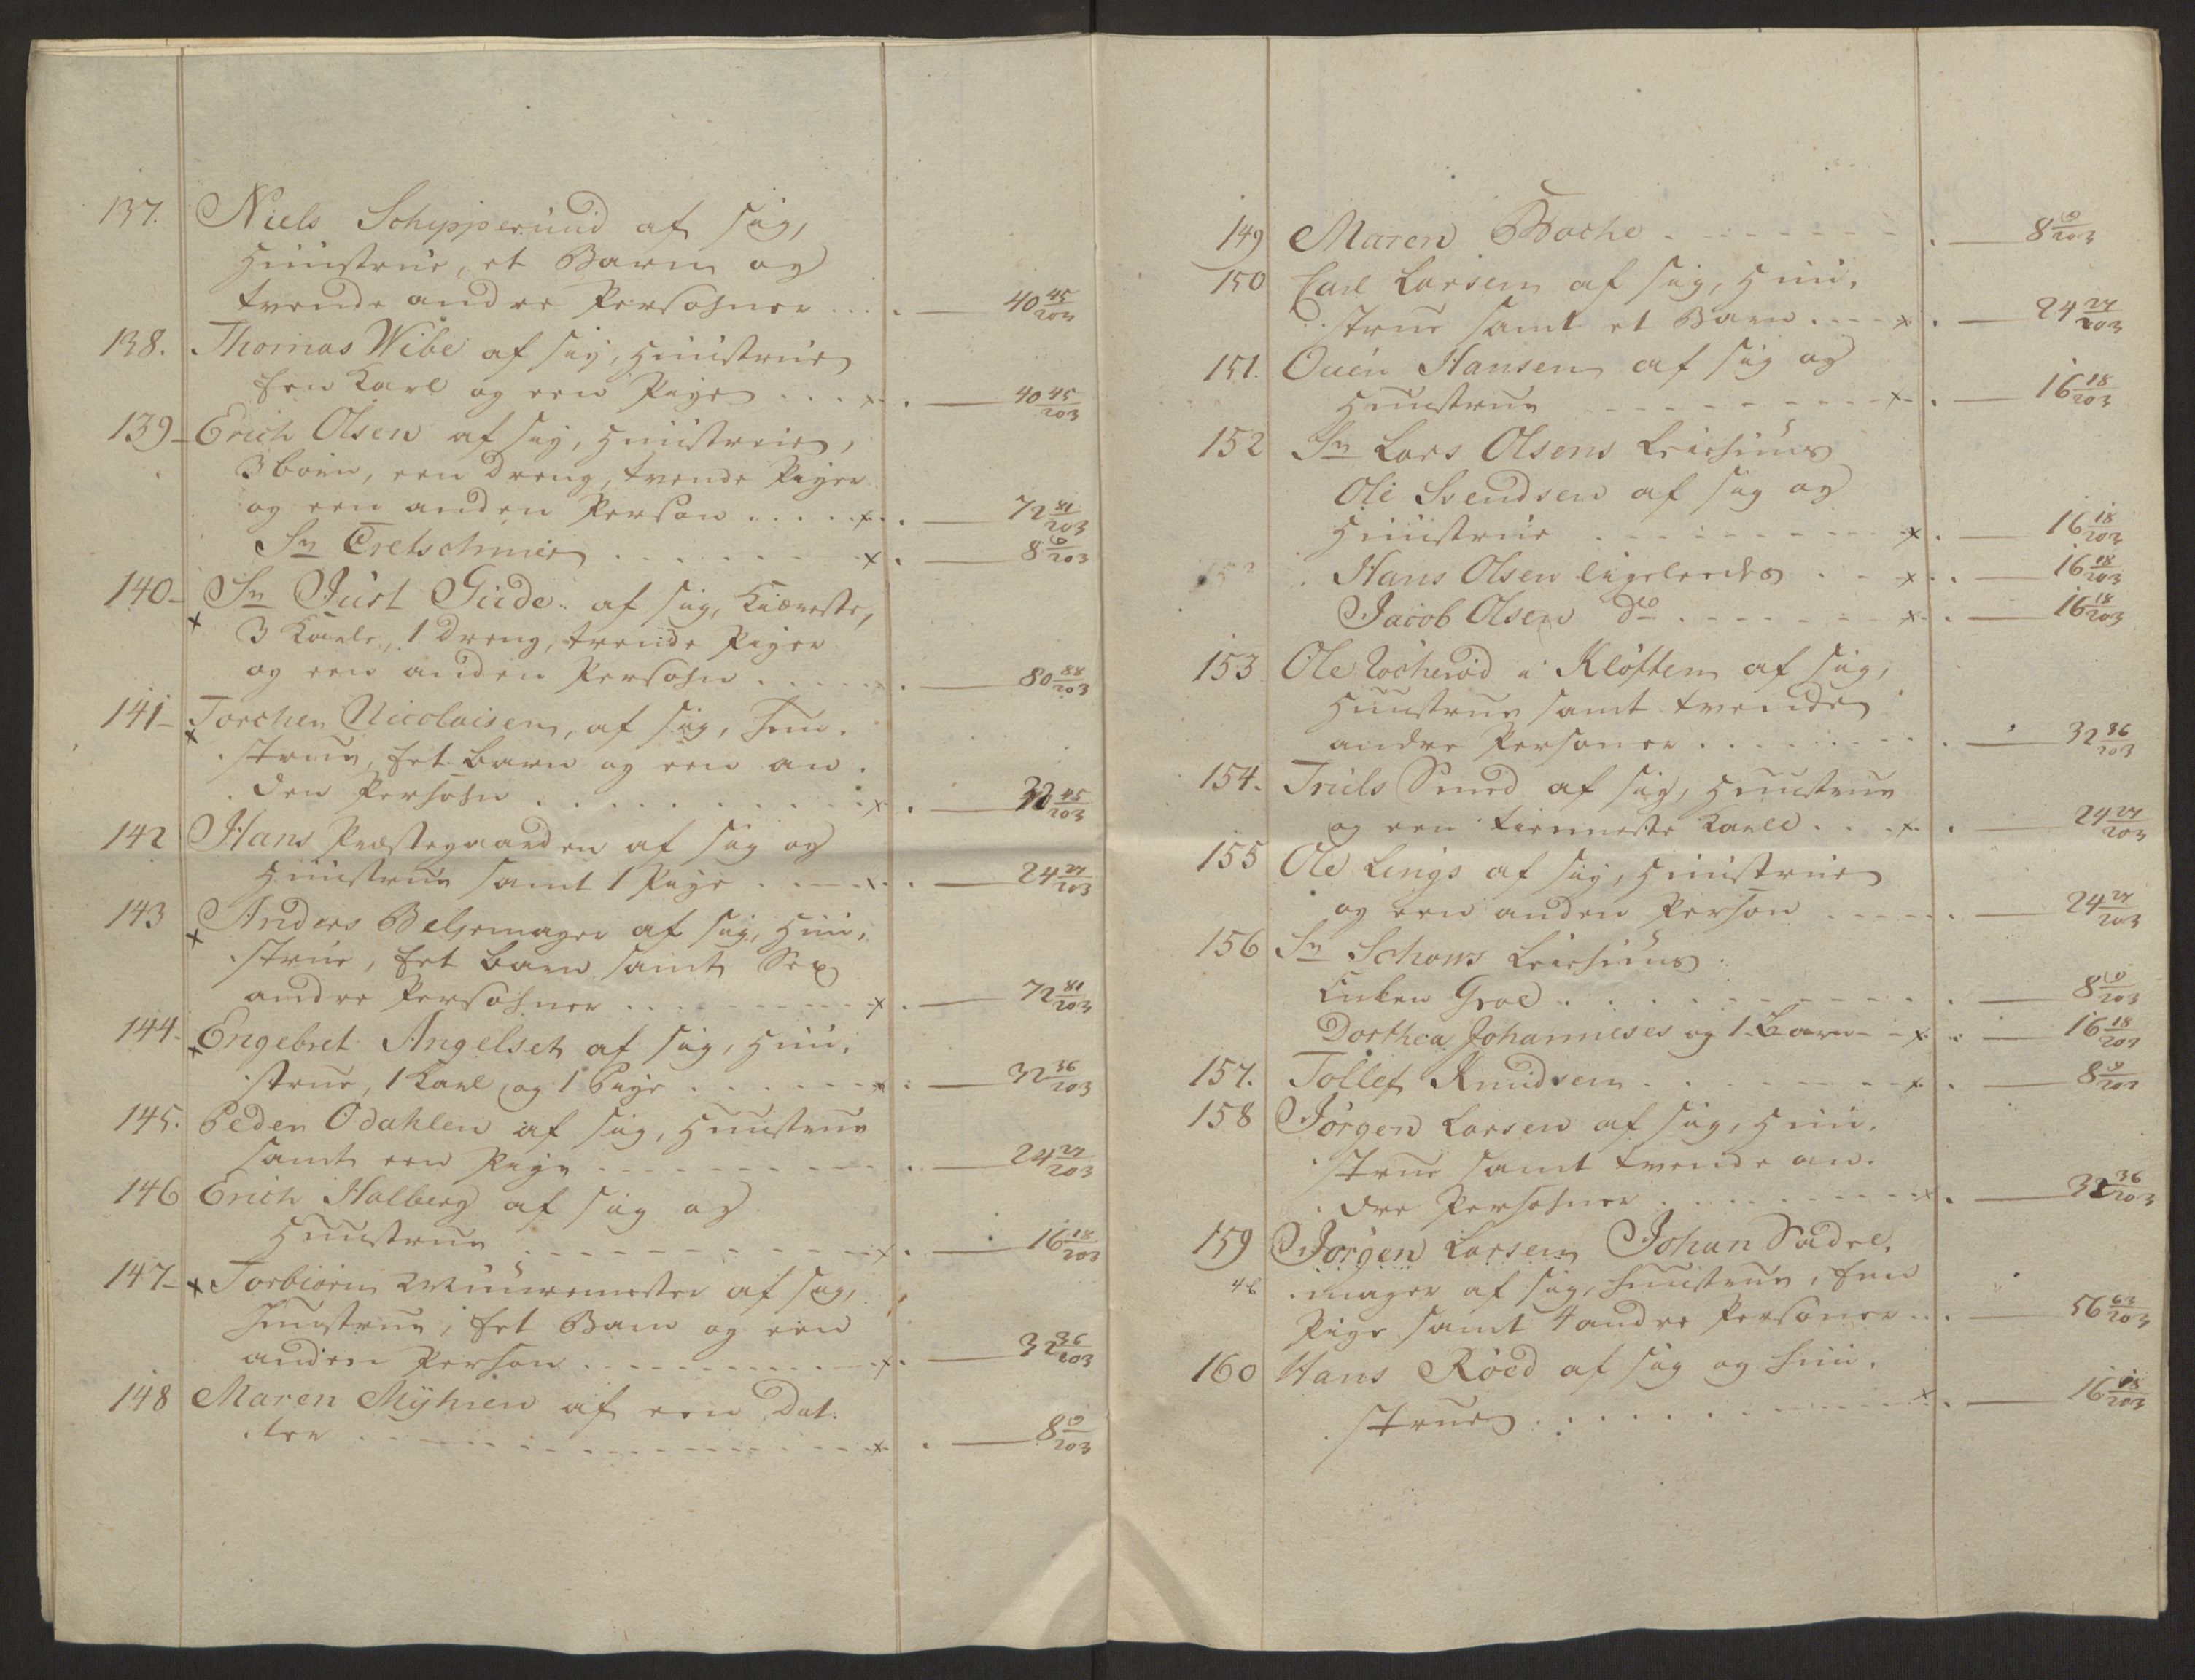 137. Niels Schipperuud af sig,
Huustrue, et Barn og
tvende andre Persohner . . . . — 40 45/203
138. Thomas Wibe af sig, Huustrue
Een Karl og een Pige . . . x . — 40 45/203
139 - Erich Olsen af sig, Huustrue,
3 börn, een Dreng, tvende Piger
og een anden Person . . . . x . — 72 81/203
Sr Cretschmer . . . . . x . — 8 9/203
140 - Sr Just Gude af sig, Kiæreste,
x 3 Karle, 1 Dreng, tvende Piger
og een anden Persohn . . . . . — 80 88/203
141 - Torchen Nicolaisen, af sig, Huu-
x strue, Eet Barn og een an-
den Persohn . . . . . . . x . — 32 45/203
142 Hans Præstegaarden af sig og
Huustrue samt 1 Pige . . . x . — 24 27/203
143 Anders Belgemager af sig, Huu-
x strue, Eet Barn samt Sex
andre Persohner . . . . . x . — 72 81/203
144. Engebret Angelset af sig, Huu-
x strue, 1 Karl og 1 Pige . . . . x . — 32 36/203
145. Peder Odahlen af sig, Huustrue
samt een Pige . . . . . . — 24 27/203
146 Erich Halberg af sig og
Huustrue . . . . . . x . — 16 18/203
147 - x Torbiörn Muuremester af sig,
Huustrue, Eet Barn og een
anden Person . . . . . . x . — 32 36/203
148 Maren Myhren af een Dat-
ter . . . . . . . . x . — 8 9/203
149 Maren Bache . . . . . . — 8 9/203
150 Carl Larsen af sig, Huu-
strue samt et Barn . . . x . — 24 27/203
151. Ouen Hansen af sig og
Huustrue . . . . . . x . — 16 18/203
152 Sr Lars Olsens Leiehuus
Ole Svendsen af sig og
Huustrue . . . . . . x . — 16 18/203
Hans Olsen ligeledes . . x . — 16 18/203
Jacob Olsen do . . . . . x . — 16 18/203
153. Ole i Klöften af sig,
Huustrue samt tvende
andre Personer . . . . . . — 32 36/203
154. Truls Smed af sig, Huustrue
og een tienneste Karl . . . x . — 24 27/203
155 Ole Lings af sig, Huustrue
og een anden Person . . . . — 24 27/203
156 Sr Schows Leiehuus.
Enken Groe . . . . . . . — 8 9/203
Dorthea Johanneses og 1 Barn x . — 16 18/203
157. Tollef Knudsen . . . . . x . — 8 9/203
158 Jörgen Larsen af sig, Huu-
strue samt tvende an-
dre Persohner . . . . . x . — 32 36/203
159 Jörgen Larsen Johan Sadel-
mager af sig, Huustrue, Een
Pige samt 4 andre Personer . . — 56 63/203
160 Hans Röed af sig og Huu-
strue . . . . . . . x . — 16 18/203